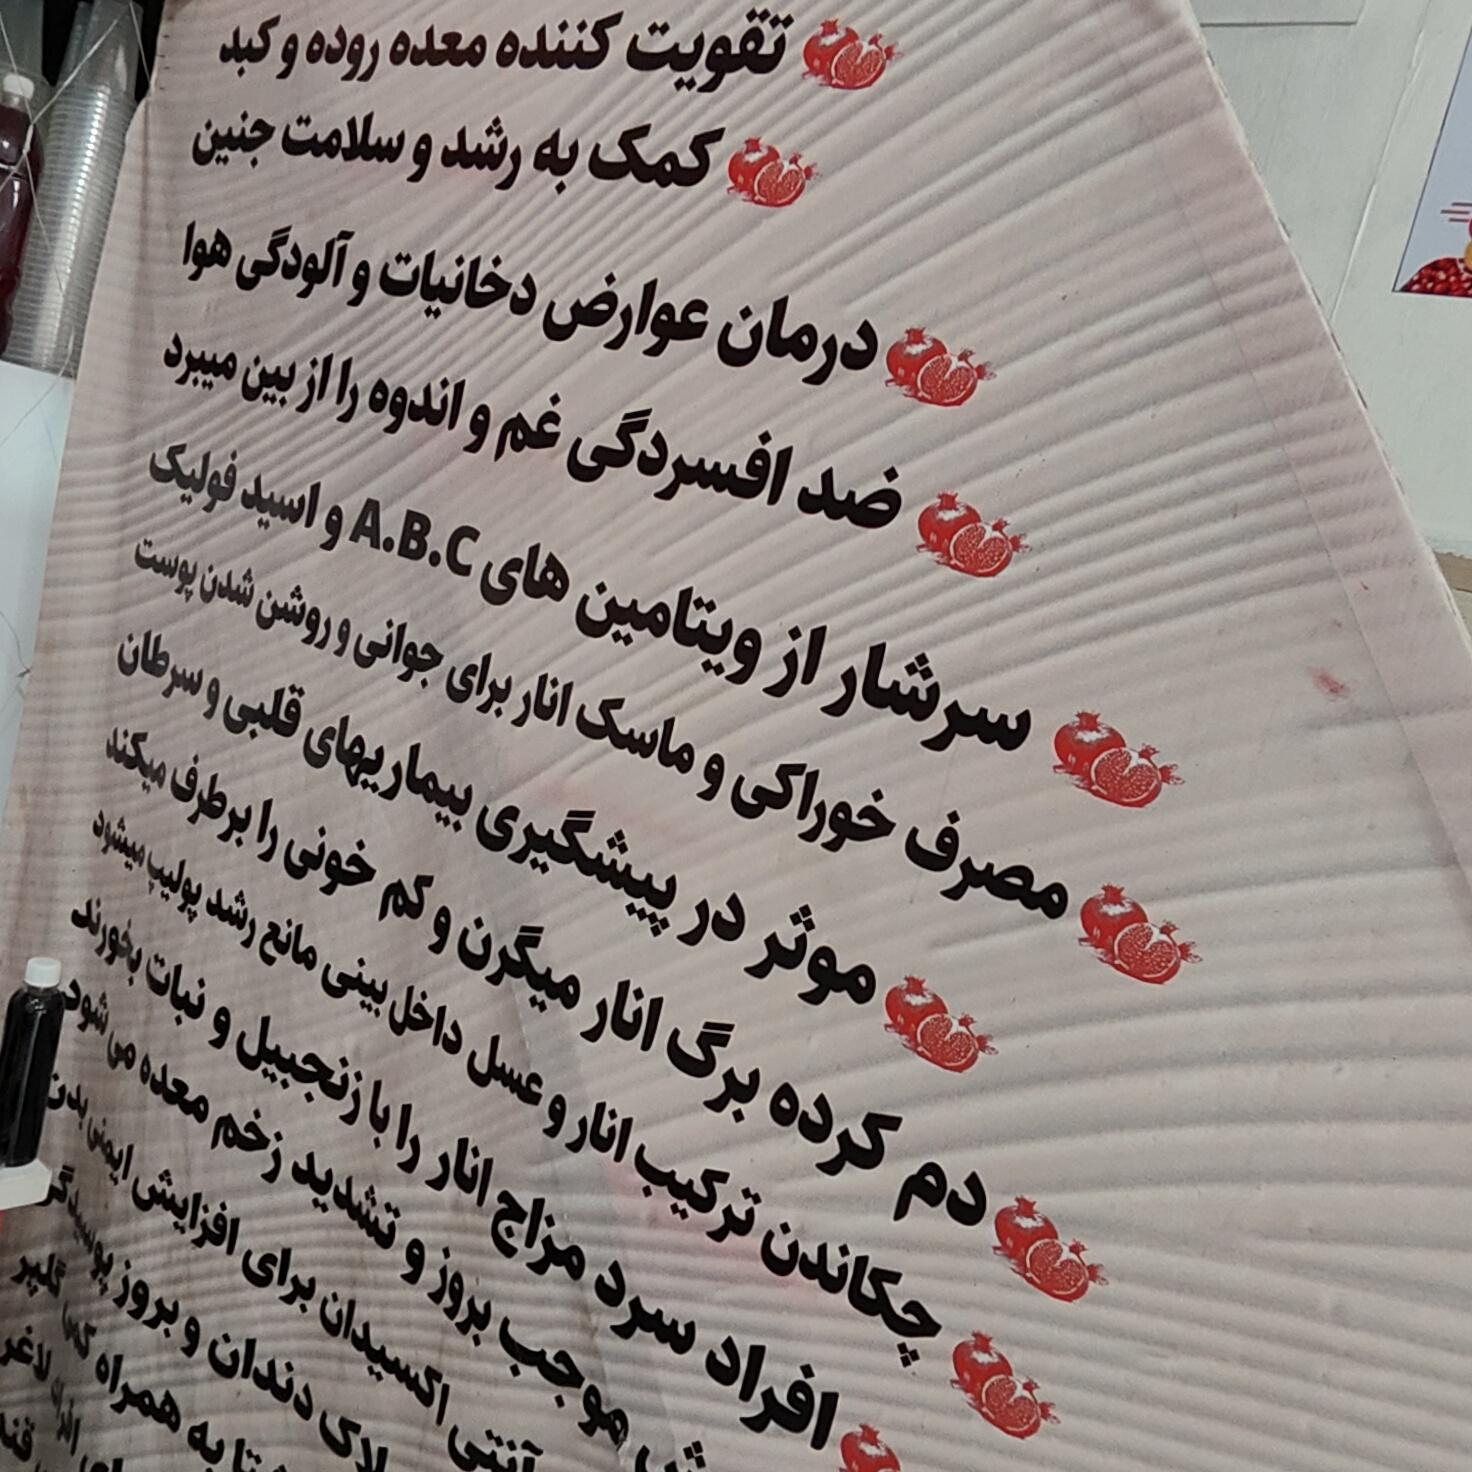 تقویت کننده معده روده و کبد
کمک به رشد و سلامت جنین
درمان عوارض دخانیات و آلودگی هوا
ضد افسردگی غم و اندوه را از بین میبرد
سرشار از ویتامین های A.B.C و اسید فولیک
مصرف خوراکی و ماسک انار برای جوانی و روشن شدن پوست
موثر در پیشگیری بیماریهای قلبی و سرطان
دم کرده برگ انار میگرن و کم خونی را برطرف میکند
چکاندن ترکیب انار و عسل داخل بینی مانع رشد پولیپ میشود
افراد سرد مزاج انار را با زنجبیل و نبات بخورند
موجب بروز و تشدید زخم معده می شود
آنتی اکسیدان برای افزایش ایمنی بدن
لاک دندان و بروز پوسیدگی
به همراه کمی گلپر
لاغر